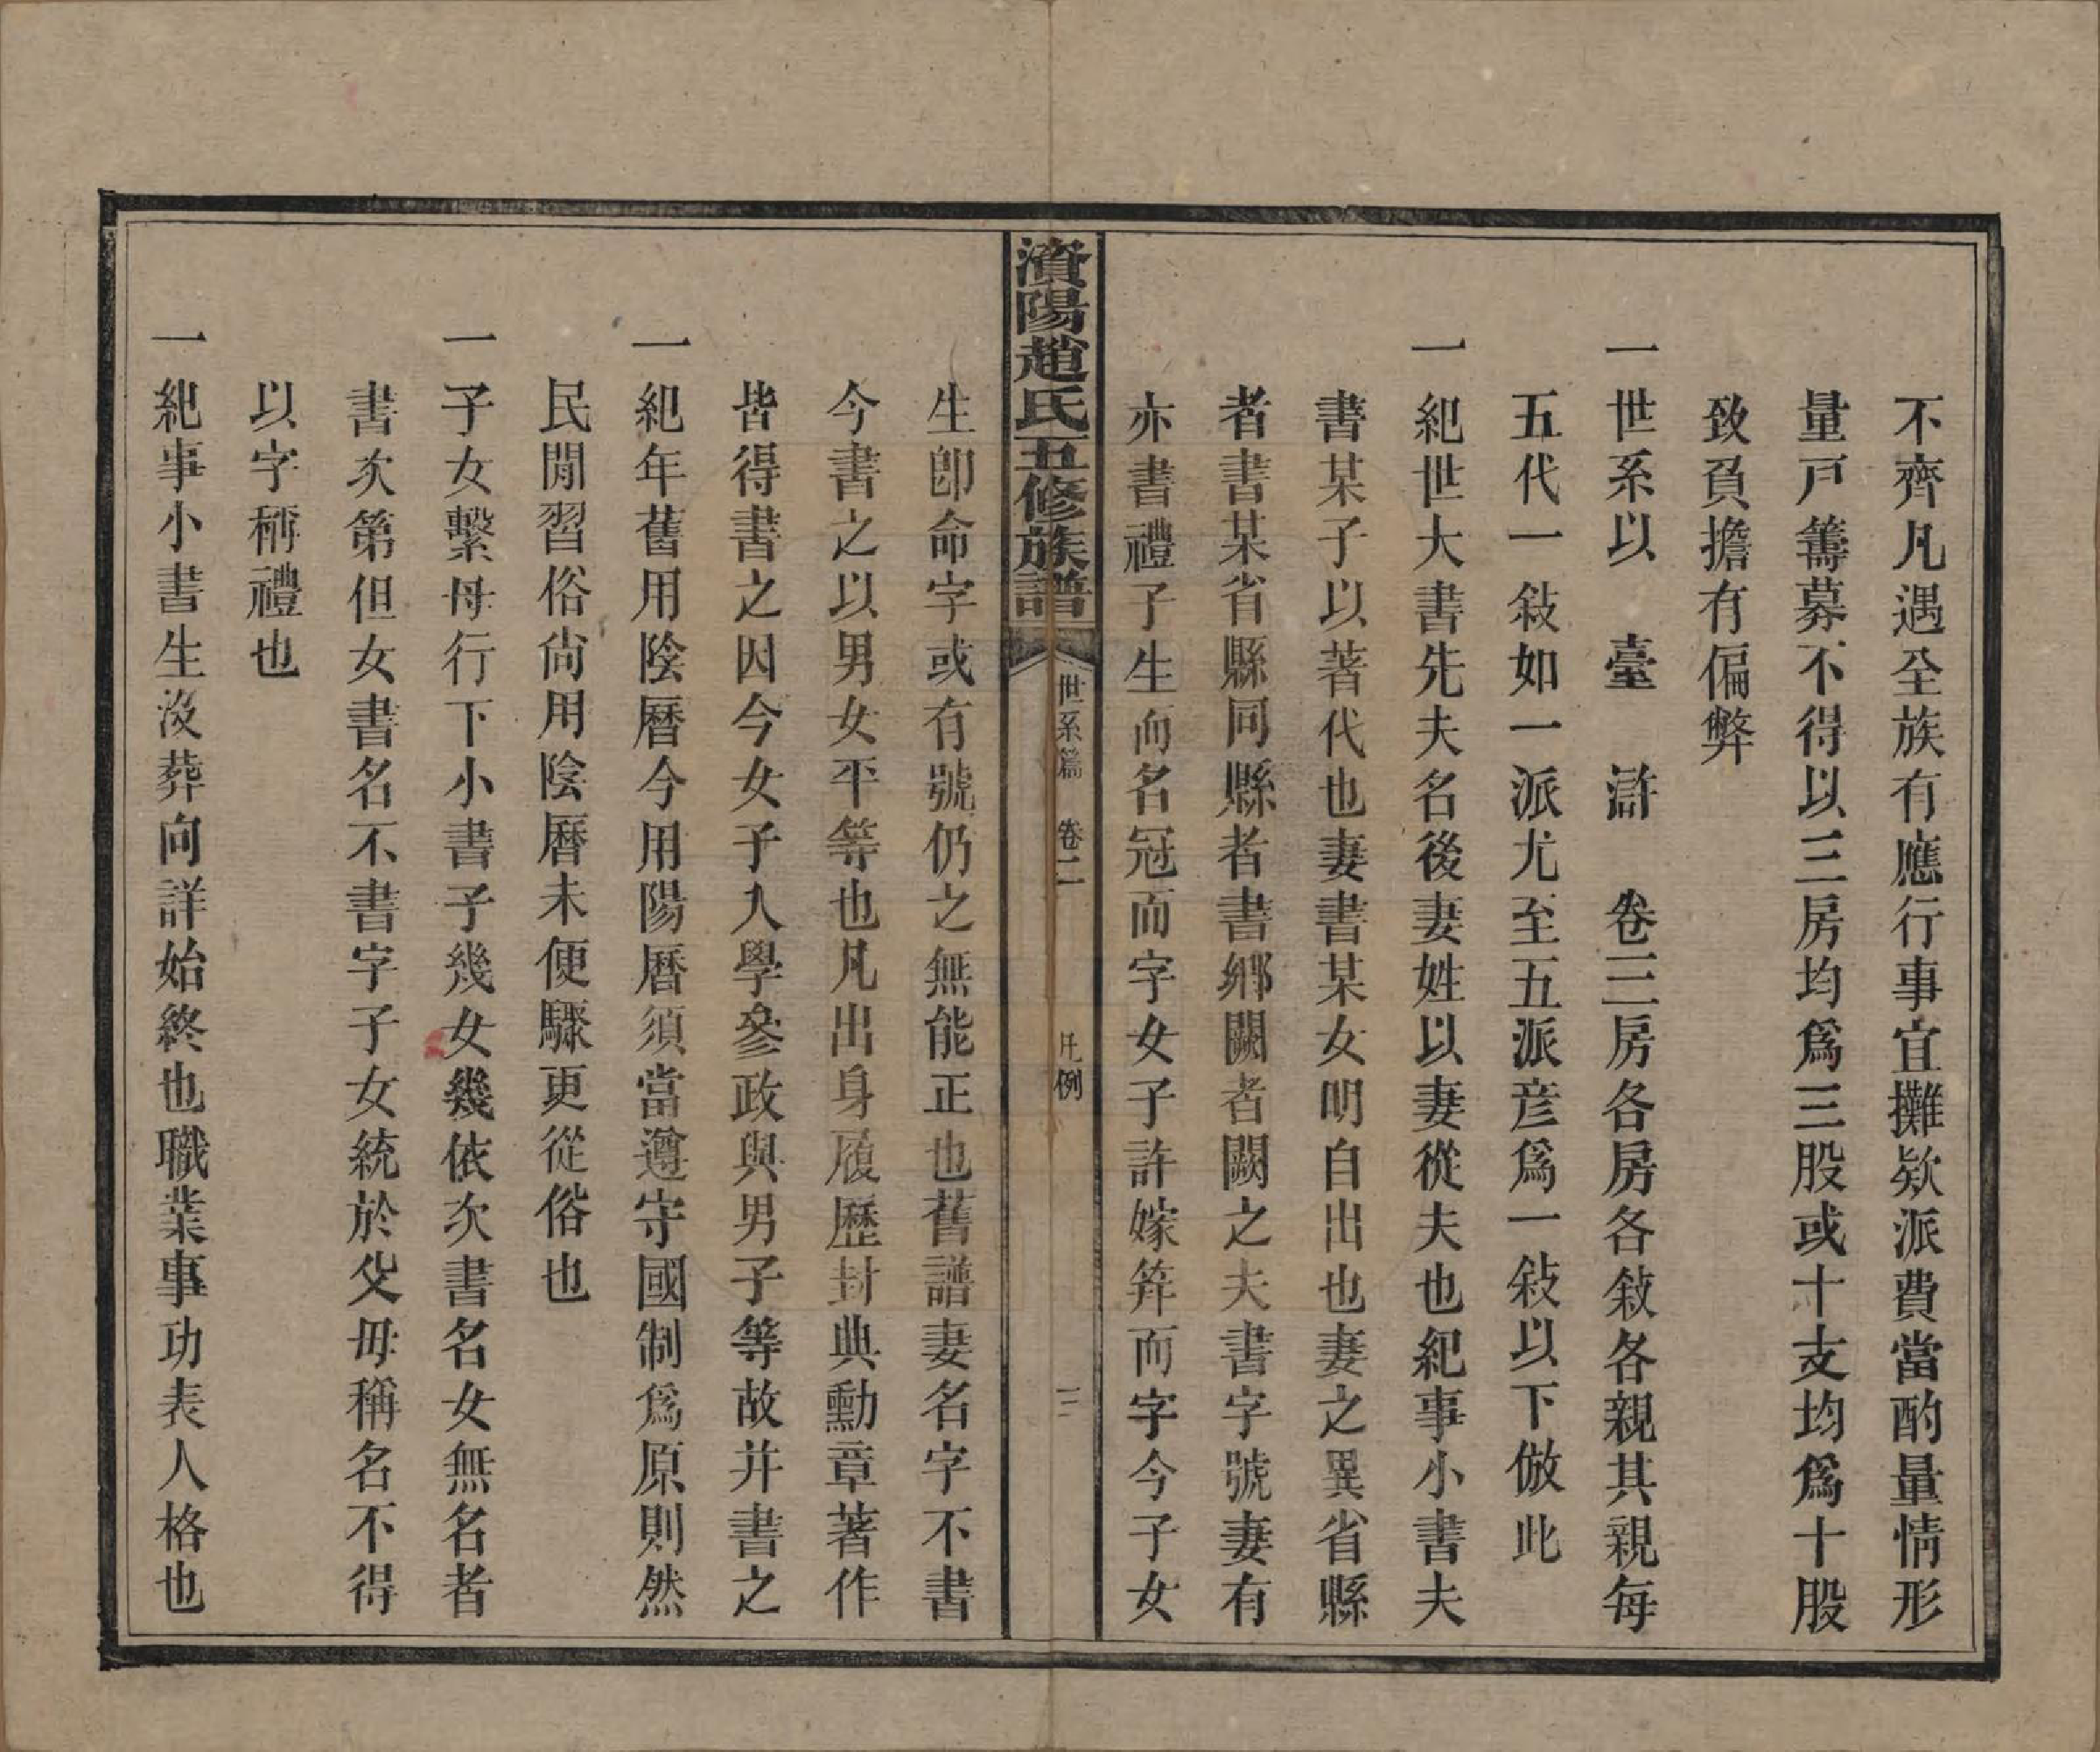 不齊凡遇全族有應行事宜攤欵派費當酌量情形
量戸籌募不得以三房均爲三股或十支均爲十股
致負擔有偏弊
一世系以　臺　滸　卷三房各房各敍各親其親每
五代一敍如一派尤至五派彦爲一敍以下倣此
一紀世大書先夫名後妻姓以妻從夫也紀事小書夫
書某子以著代也妻書某女明自出也妻之異省縣
者書某省縣同縣者書鄉闕者闕之夫書字號妻有
亦書禮子生而名冠而字女子許嫁笄而字今子女
濱陽趙氏五修族譜　世系篇　卷二　凡例　二
生卽命字或有號仍之無能正也舊譜妻名字不書
今書之以男女平等也凡出身履歷封典勳章著作
皆得書之因今女子入學參政與男子等故并書之
一紀年舊用陰曆今用陽曆須當遵守國制爲原則然
民間習俗尙用陰曆未便驟更從俗也
一子女繫母行下小書子幾女幾依次書名女無名者
書次第但女書名不書字子女統於父母稱名不得
以字稱禮也
一紀事小書生沒葬向詳始終也職業事功表人格也